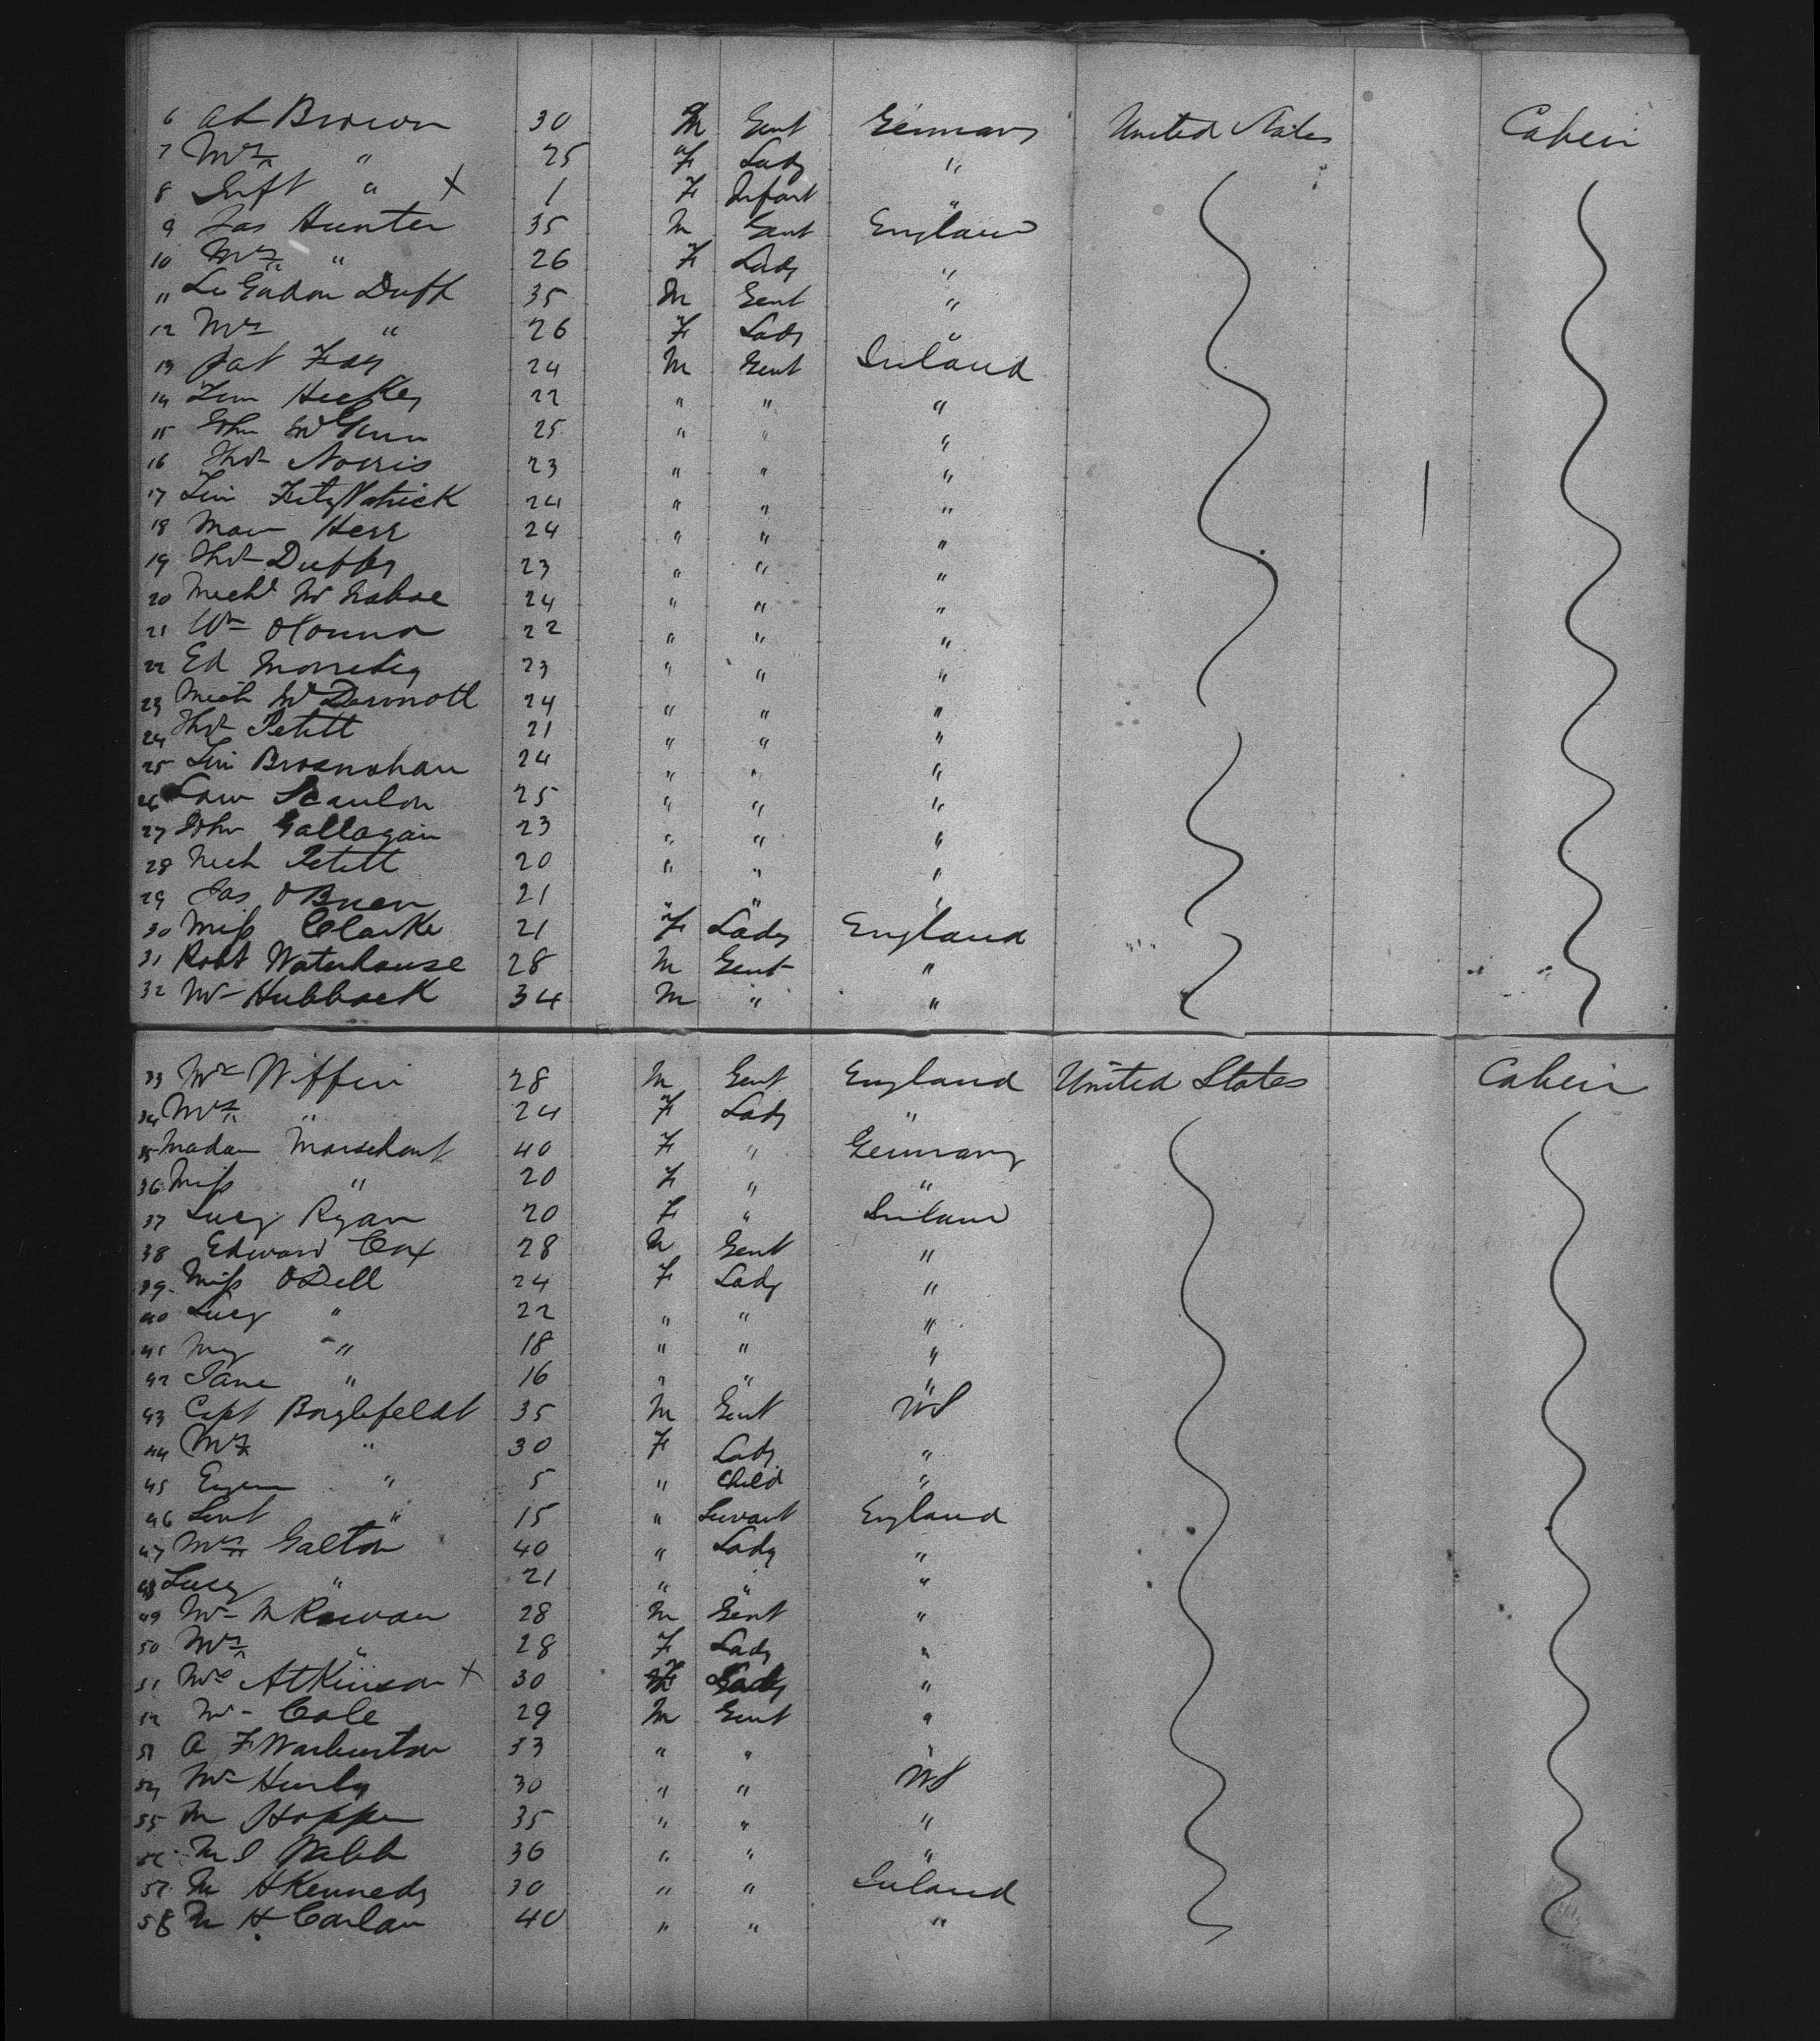 6 Ab Brown 30 M Gent Germany United States Cabin
7 Mrs " 25 F Lady "
8 Inft " X 1 F Infant "
9 Jas Hunter 35 M Gent England
10 Mrs " 26 F Lady "
11 Duff 35 M Gent "
12 Mrs " 26 F Lady "
13 Pat Fay 24 M Gent Ireland
14 22 " " "
15 John 25 " " "
16 Thos Norris 23 " " "
17 Jim FitzPatrick 24 " " "
18 24 " " "
19 Thos Duffy 23 " " "
20 Michl 24 " " "
21 Wm OConnor 22 " " "
22 Ed 23 " " "
23 Mich McDermott 24 " " "
24 Thos Petitt 21 " " "
25 Jim Brosnahan 24 " " "
26 Law Scanlon 25 " " "
27 John Gallagan 23 " " "
28 Mich Petitt 20 " " "
29 Jas OBrien 21 " " "
30 Miss Clarke 21 F Lady England
31 Robt Waterhouse 28 M Gent "
32 Mr Hubback 34 M " "
33 Mr Wiffin 28 M Gent England United States Cabin
34 Mrs " 24 F Lady "
35 Madam Marschant 40 F " Germany
36 Miss " 20 F " "
37 Lucy Ryan 20 F " Ireland
38 Edward Cox 28 M Gent "
39 Miss ODell 24 F Lady "
40 Lucy " 22 " " "
41 " 18 " " "
42 Jane " 16 " " "
43 Capt Borglefeldt 35 M Gent US
44 Mrs " 30 F Lady "
45 " 5 " Child "
46 Servt " 15 " Servant England
47 Mrs Galton 40 " Lady "
48 Lucy " 21 " " "
49 Mr 28 M Gent "
50 Mrs " 28 F Lady "
51 Atkinson X 30 F Lady "
52 Mr Cole 29 M Gent "
53 A F Warburton 53 " " "
54 Mr 30 " " US
55 M 35 " " "
56 M 36 " " "
57 M H Kennedy 30 " " Ireland
58 M H Carlan 40 " " "